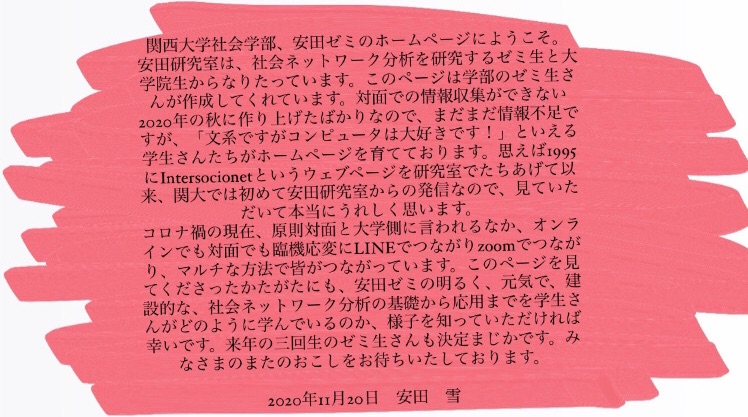 関西大学社会学部、安田ゼミのホームページにようこそ。
安田研究室は、社会ネットワーク分析を研究するゼミ生と大
学院生からなりたっています。このページは学部のゼミ生さ
んが作成してくれています。対面での情報収集ができない
2020年の秋に作り上げたばかりなので、まだまだ情報不足で
すが、「文系ですがコンピュータは大好きです！」といえる
学生さんたちがホームページを育てております。思えば1995
にIntersocionetというウェブページを研究室でたちあげて以
来、関大では初めて安田研究室からの発信なので、見ていた
だいて本当にうれしく思います。
コロナ禍の現在、原則対面と大学側に言われるなか、オンラ
インでも対面でも臨機応変にLINEでつながりzoomでつなが
り、マルチな方法で皆がつながっています。このページを見
てくださったかたがたにも、安田ゼミの明るく、元気で、建
設的な、社会ネットワーク分析の基礎から応用までを学生さ
んがどのように学んでいるのか、様子を知っていただければ
幸いです。来年の三回生のゼミ生さんも決定まじかです。み
なさまのまたのおこしをお待ちいたしております。
2020年11月20日　安田　雪